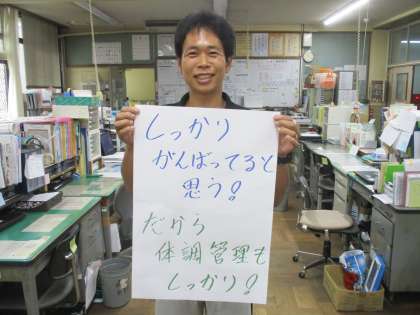 しっかり
がんばってると
思う!
だから
体調管理も
しっかり!